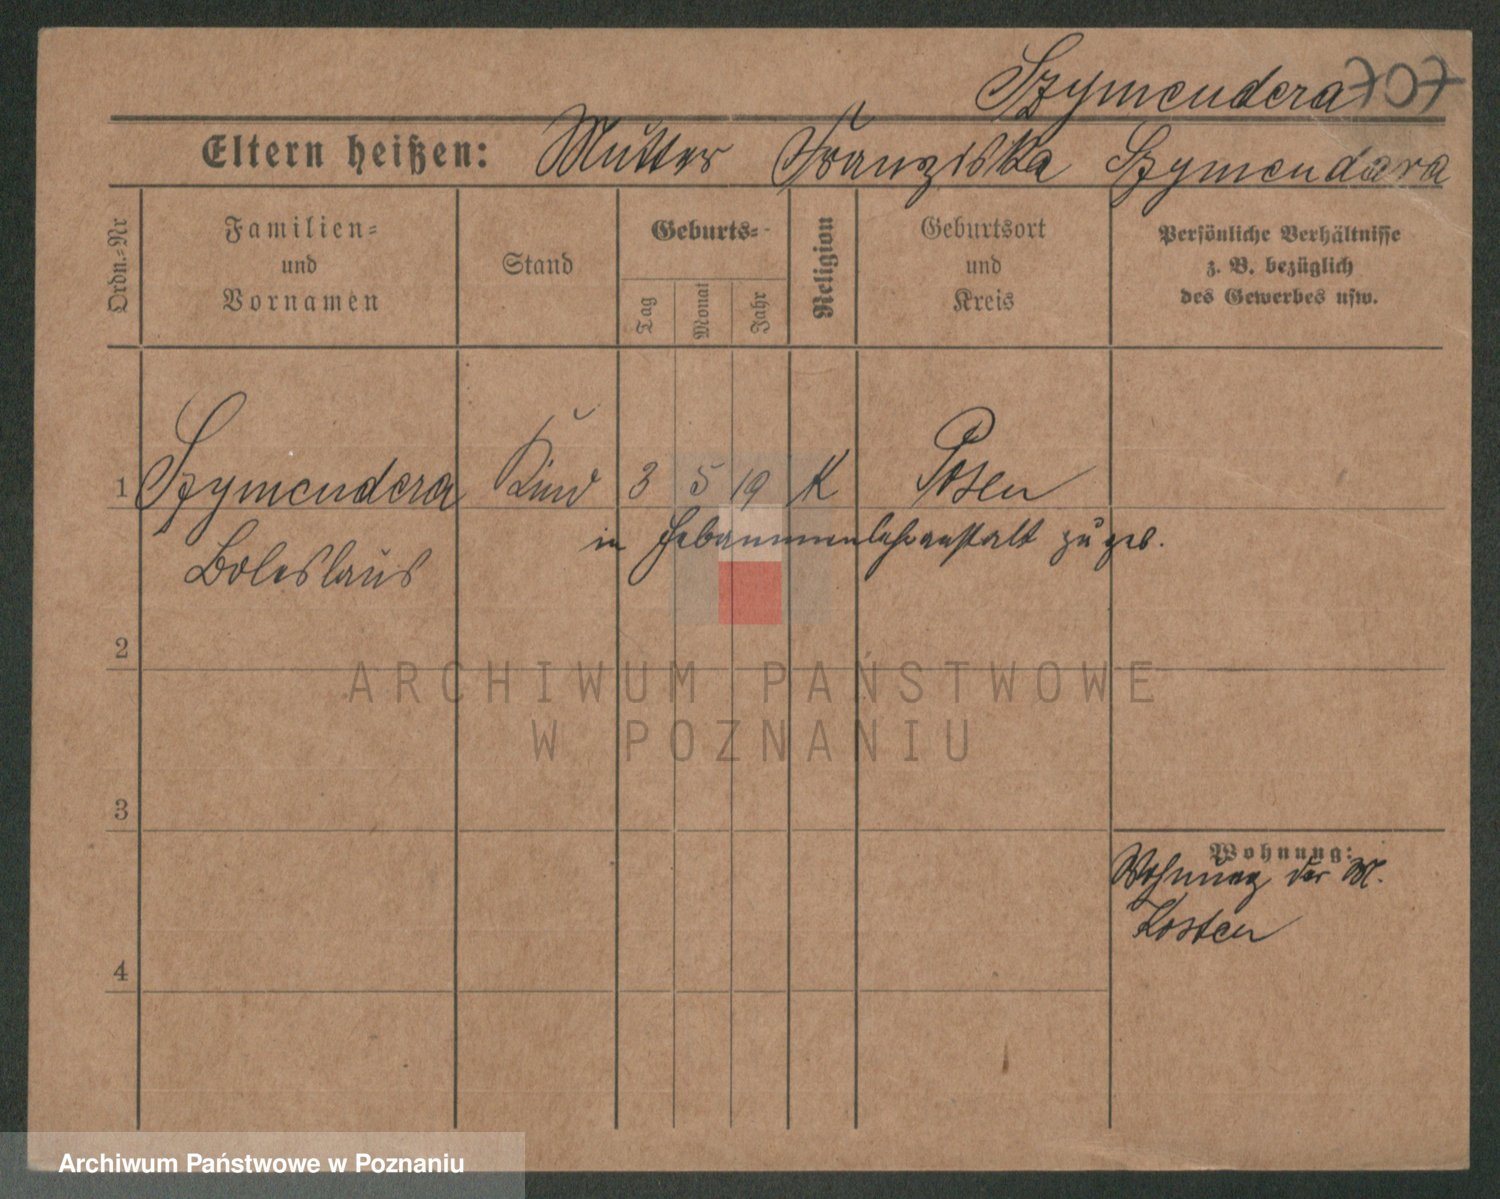 Szymendera 707
Eltern heißen: Mutter Franziska Szymendera
Ordn.-Nr
Familien-
und
Vornamen
Stand
Geburts-
Tag
Monat
Jahr
Religion
Geburtsort
und
Kreis
Persönliche Verhältnisse
z. B. bezüglich
des Gewerbes usw.
1 Szymendera Kind 3 5 19 K Posen
in Hebammenlehranstalt zugeb.
Boleslaus
2
ARCHIWUM PAŃSTWOWE
W POZNANIU
3
Wohnung:
Wohnung der M.
Kosten
4
Archiwum Państwowe w Poznaniu